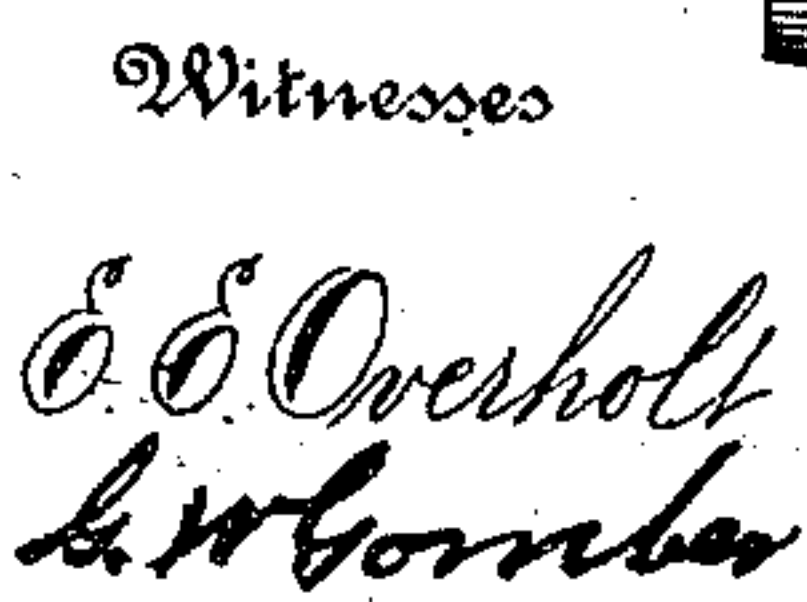 Witnesses
E. E. Overholt
G. W. Gomber